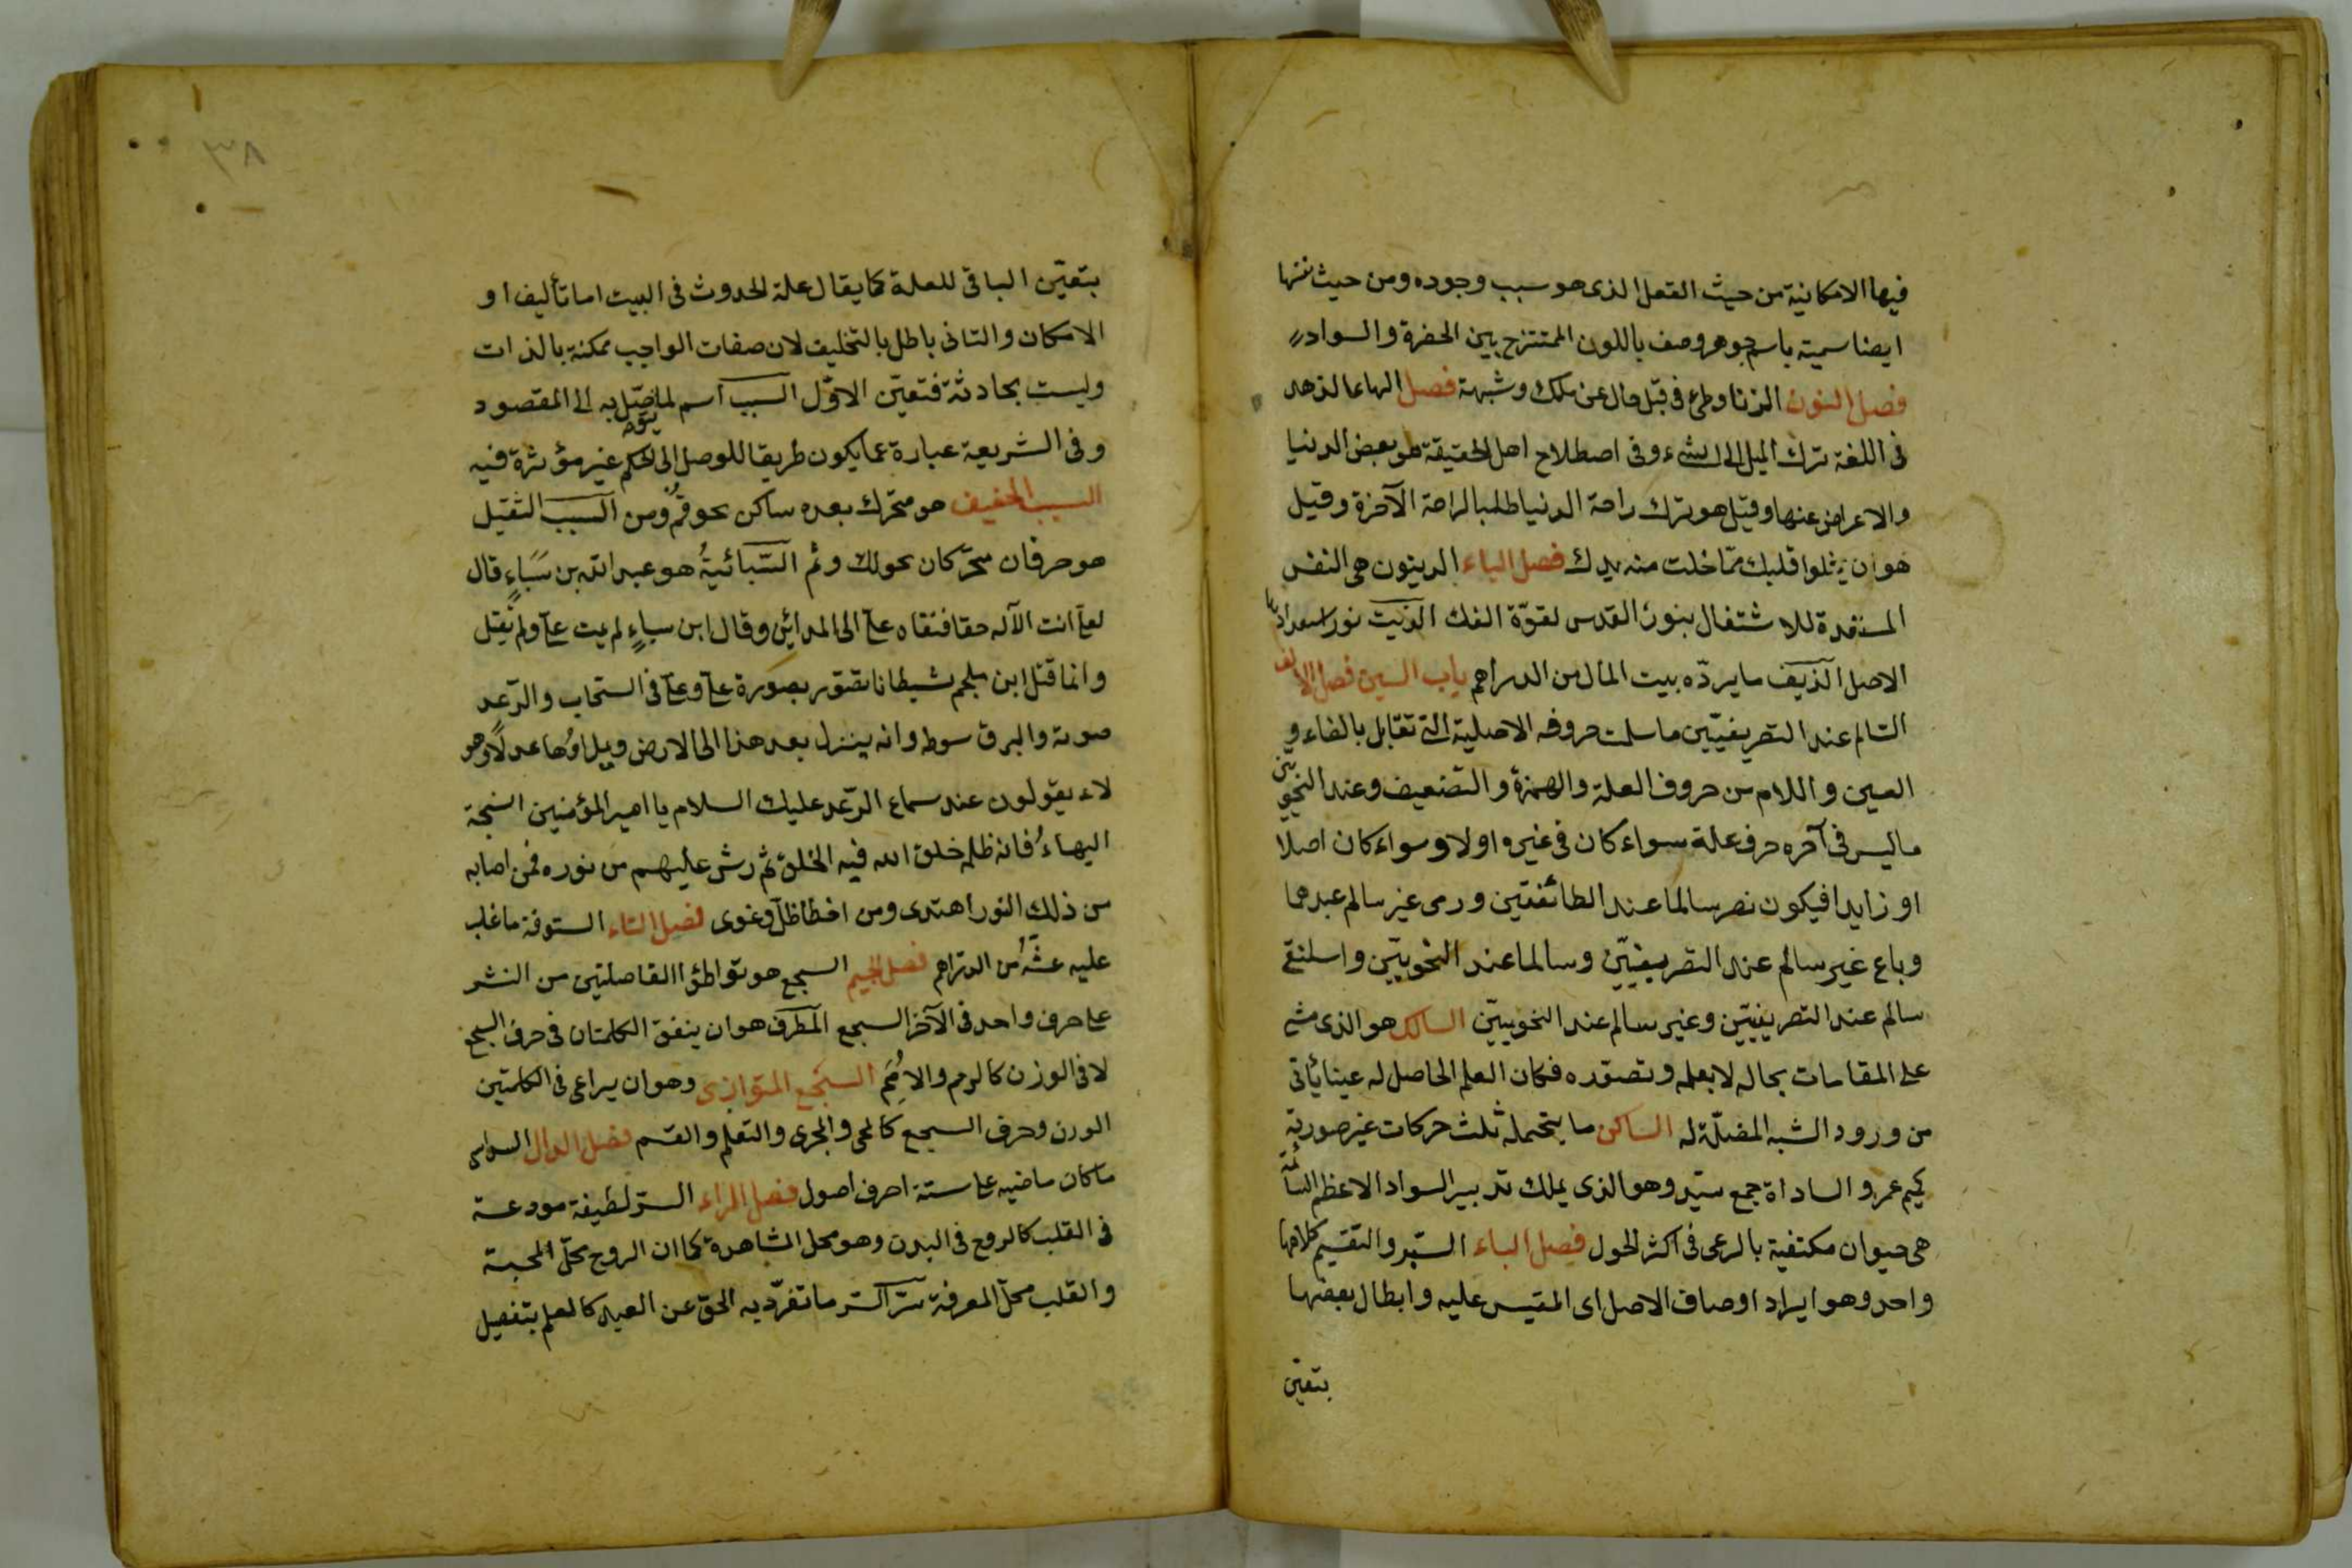 فيها الامكانية من حيث الفعل الذى هو سبب وجوده ومن حيث نفسها
ايضا سميت باسم جوهر وصف باللون الممتزج بين الحضرة والسواد
فصل النون الزنا وطئ فى قبل خال عن ملك وشبهة فصل الهاء الزهد
فى اللغة ترك الميل الى الشىء وفى اصطلاح اهل الحقيقة هو بعض الدنيا
والاعراض عنها وقيل هو ترك راحة الدنيا طلبا لراحة الآخرة وقيل
هو ان يخلوا قلبك مما خلت منه يدك فصل الياء الزيتون هى النفس
المستعدة للاشتغال بنور القدس لقوة الفك الزيت نور استعدادها
الاصل الزيف ما يرده بيت المال من الدراهم باب السين فصل الالف
السالم عند التصريفيين ما سلمت حروفه الاصلية التى تقابل بالفاء و
العين واللام من حروف العلة والهمزة والتضعيف وعند النحويين
ما ليس فى آخره حرف علة سواء كان فى غيره اولا وسواء كان اصلا
او زايدا فيكون نصر سالما عند الطائفتين ورمى غير سالم عندهما
وباع غير سالم عند التصريفيين وسالما عند النحويين واسلنقى
سالم عند التصريفيين وغير سالم عند النحويين السالك هو الذى مشى
على المقامات بحاله لا بعلمه وتصوره فكان العلم الحاصل له عينا يأتى
من ورود الشبه المضلة له الساكن ما يتحمل ثلث حركات غير صورية
كميم عمرو الساداة جمع سيد وهو الذى يملك تدبير السواد الاعظم السائمة
هى حيوان مكتفية بالرعى فى اكثر الحول فصل الباء السبر والتقسيم كلاهما
واحد وهو ايراد اوصاف الاصل اى المقيس عليه وابطال بعضها
بتعين
٣٨
بتعين الباقى للعلة كما يقال علة الحدوث فى البيت اما تأليف او
الامكان والثانى باطل بالتخليف لان صفات الواجب ممكنة بالذات
وليست بحادثة فتعين الاول السبب اسم لما يتوصل به الى المقصود
وفى الشريعة عبارة عما يكون طريقا للوصل الى الحكم غير مؤثرة فيه
السبب الخفيف هو متحرك بعده ساكن نحو قم ومن السبب الثقيل
هو حرفان متحركان نحو لك ولم السبائية هو عبد الله بن سباء قال
لعلى انت الآله حقا فنفاه على الى المدائن وقال ابن سباء لم يمت على ولم يقتل
وانما قتل ابن ملجم شيطانا تصور بصورة على وعلى فى السحاب والرعد
صوته والبرق سوطه وانه ينزل بعد هذا الى الارض ويملاؤها عدلا وهو
لاء يقولون عند سماع الرعد عليك السلام يا امير المؤمنين السبخة
الهباء فانه ظلمة خلق الله فيه الخلق ثم رش عليهم من نوره فمن اصابه
من ذلك النور اهتدى ومن اخطا ظل وغوى فصل التاء الستوفة ما غلب
عليه غشه من الدراهم فصل الجيم السجع هو تواطؤ الفاصلتين من النثر
على حرف واحد فى الآخر السجع المطرف هو ان يتفق الكلمتان فى حرف السجع
لا فى الوزن كالرم والامم السجع المتوازى وهو ان يراعى فى الكلمتين
الوزن وحرف السجع كالمحى والمجرى والتعلم والقسم فصل الدال السداسى
ما كان ماضيه على ستة احرف اصول فصل الراء السر لطيفة مودعة
فى القلب كالروح فى البدن وهو محل المشاهدة كما ان الروح محل المحبة
والقلب محل المعرفة سر السر ما تفرد به الحق عن العبد كالعلم بتفصيل